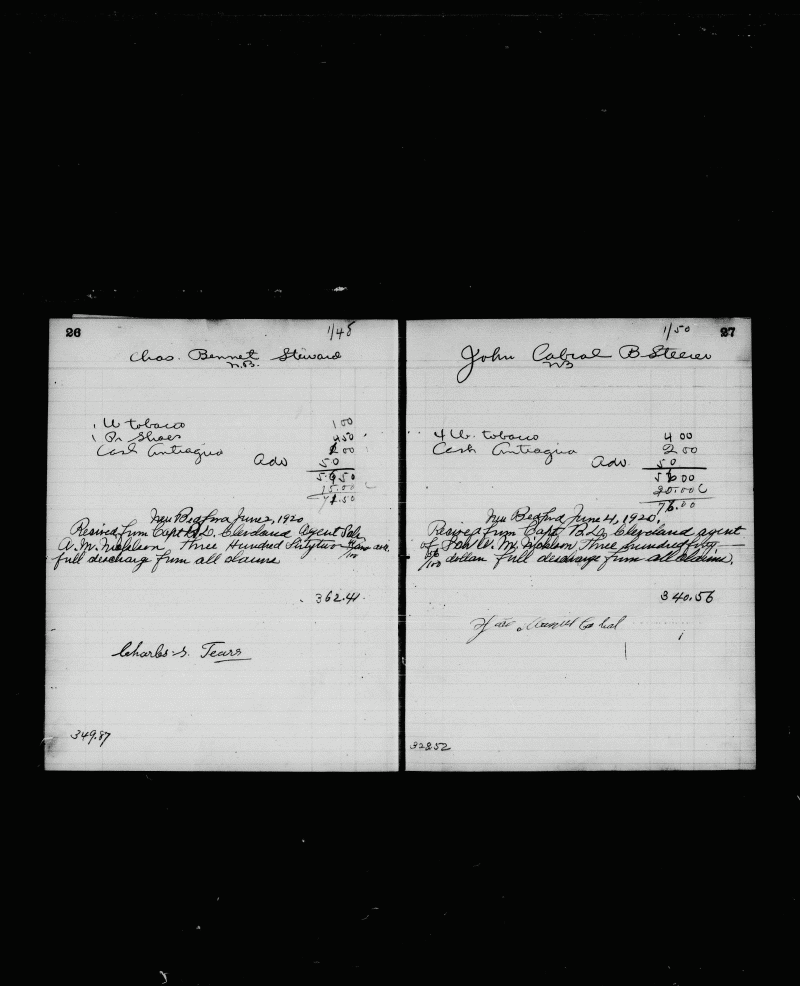 26
1/48
Chas. Bennet Steward
N.B.
1 lb tobacco 1 00
1 Pr Shoes 4 50
Cash Antiagua 00
Adv 50
15.00
New Bedford June 2, 1920
Resived from Capt B.D. Cleveland Agent
A. M. Nicholson Three Hundred Sixtytwo 41/100
full discharge from all claims
362.41
Charles S. Tears
349.87
1/50
27
John Cabral B Steerer
NB
4 lb. tobacco 4 00
Cash Antiagua 2 00
Adv. 50
56 00
20.00
76.00
New Bedford June 4, 1920.
Resived from Capt. B.D. Cleveland agent
of A. M. Nicholson Three hundred forty
56/100 dollars full discharge from all claims.
340.56
Cabral
328.52